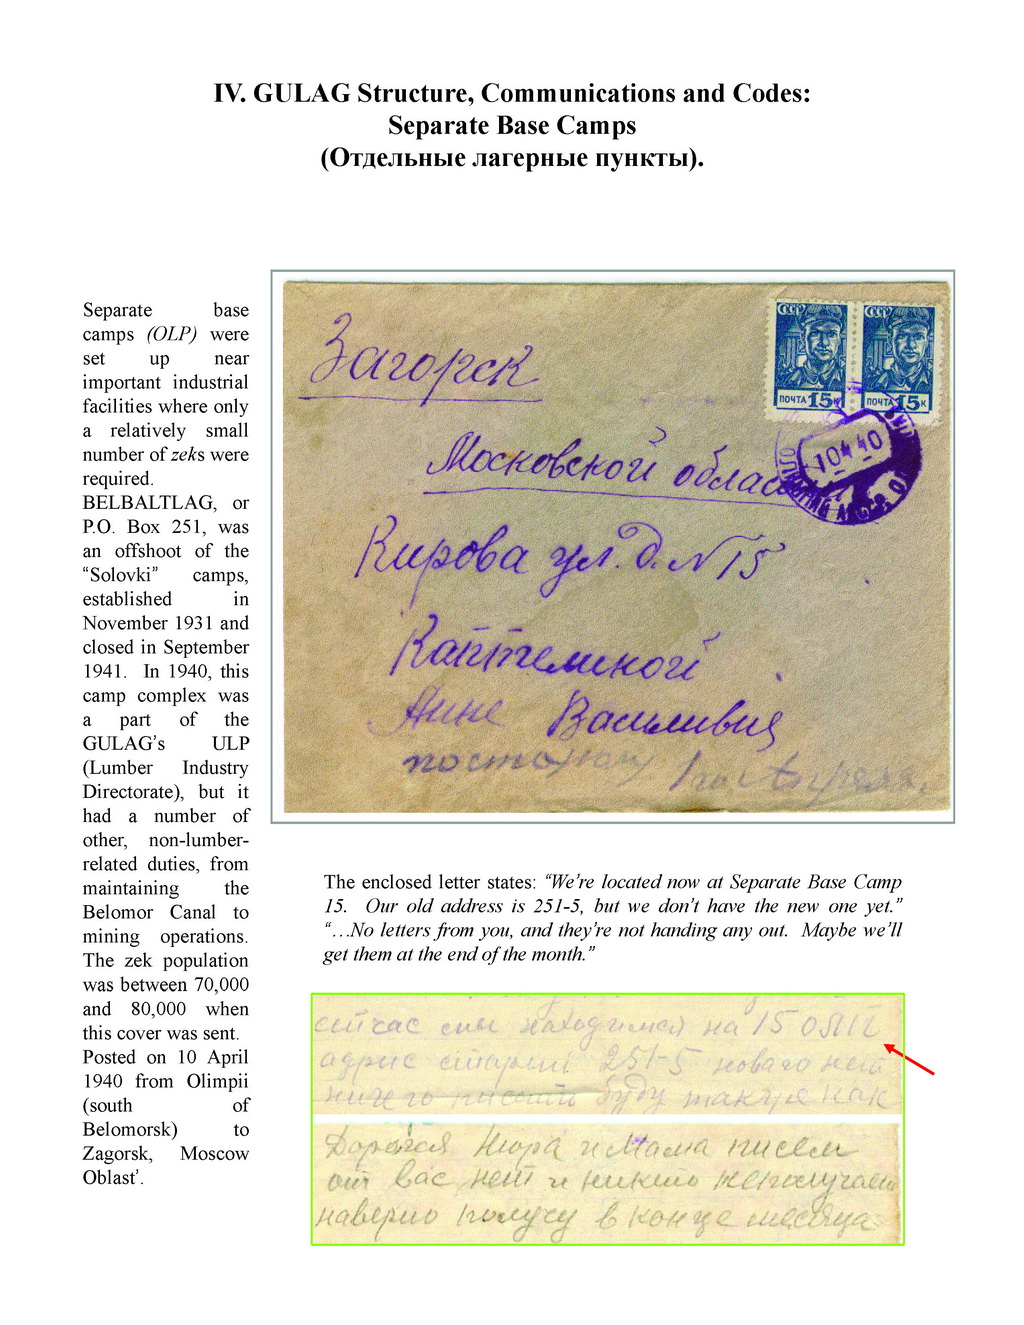 IV. GULAG Structure, Communications and Codes:
Separate Base Camps
(Отдельные лагерные пункты).
Separate base
camps (OLP) were
set up near
important industrial
facilities where only
a relatively small
number of zeks were
required.
BELBALTLAG, or
P.O. Box 251, was
an offshoot of the
“Solovki” camps,
established in
November 1931 and
closed in September
1941. In 1940, this
camp complex was
a part of the
GULAG’s ULP
(Lumber Industry
Directorate), but it
had a number of
other, non-lumber-
related duties, from
maintaining the
Belomor Canal to
mining operations.
The zek population
was between 70,000
and 80,000 when
this cover was sent.
Posted on 10 April
1940 from Olimpii
(south of
Belomorsk) to
Zagorsk, Moscow
Oblast’.
СССР СССР
ПОЧТА 15К ПОЧТА 15К
10 4 40
Загорск
Московской области
Кирова ул. д. N 15
Каптелиной
Анне Василивне
1го Апреля
The enclosed letter states: “We’re located now at Separate Base Camp
15. Our old address is 251-5, but we don’t have the new one yet.”
“…No letters from you, and they’re not handing any out. Maybe we’ll
get them at the end of the month.”
сейчас мы находимся на 15 ОЛП
адрис старый 251-5 новаго нет
ничего писать буду так как
Дорогая Нюра и Мама писем
от вас нет и никто неполучает
наверно получу в конце месяца